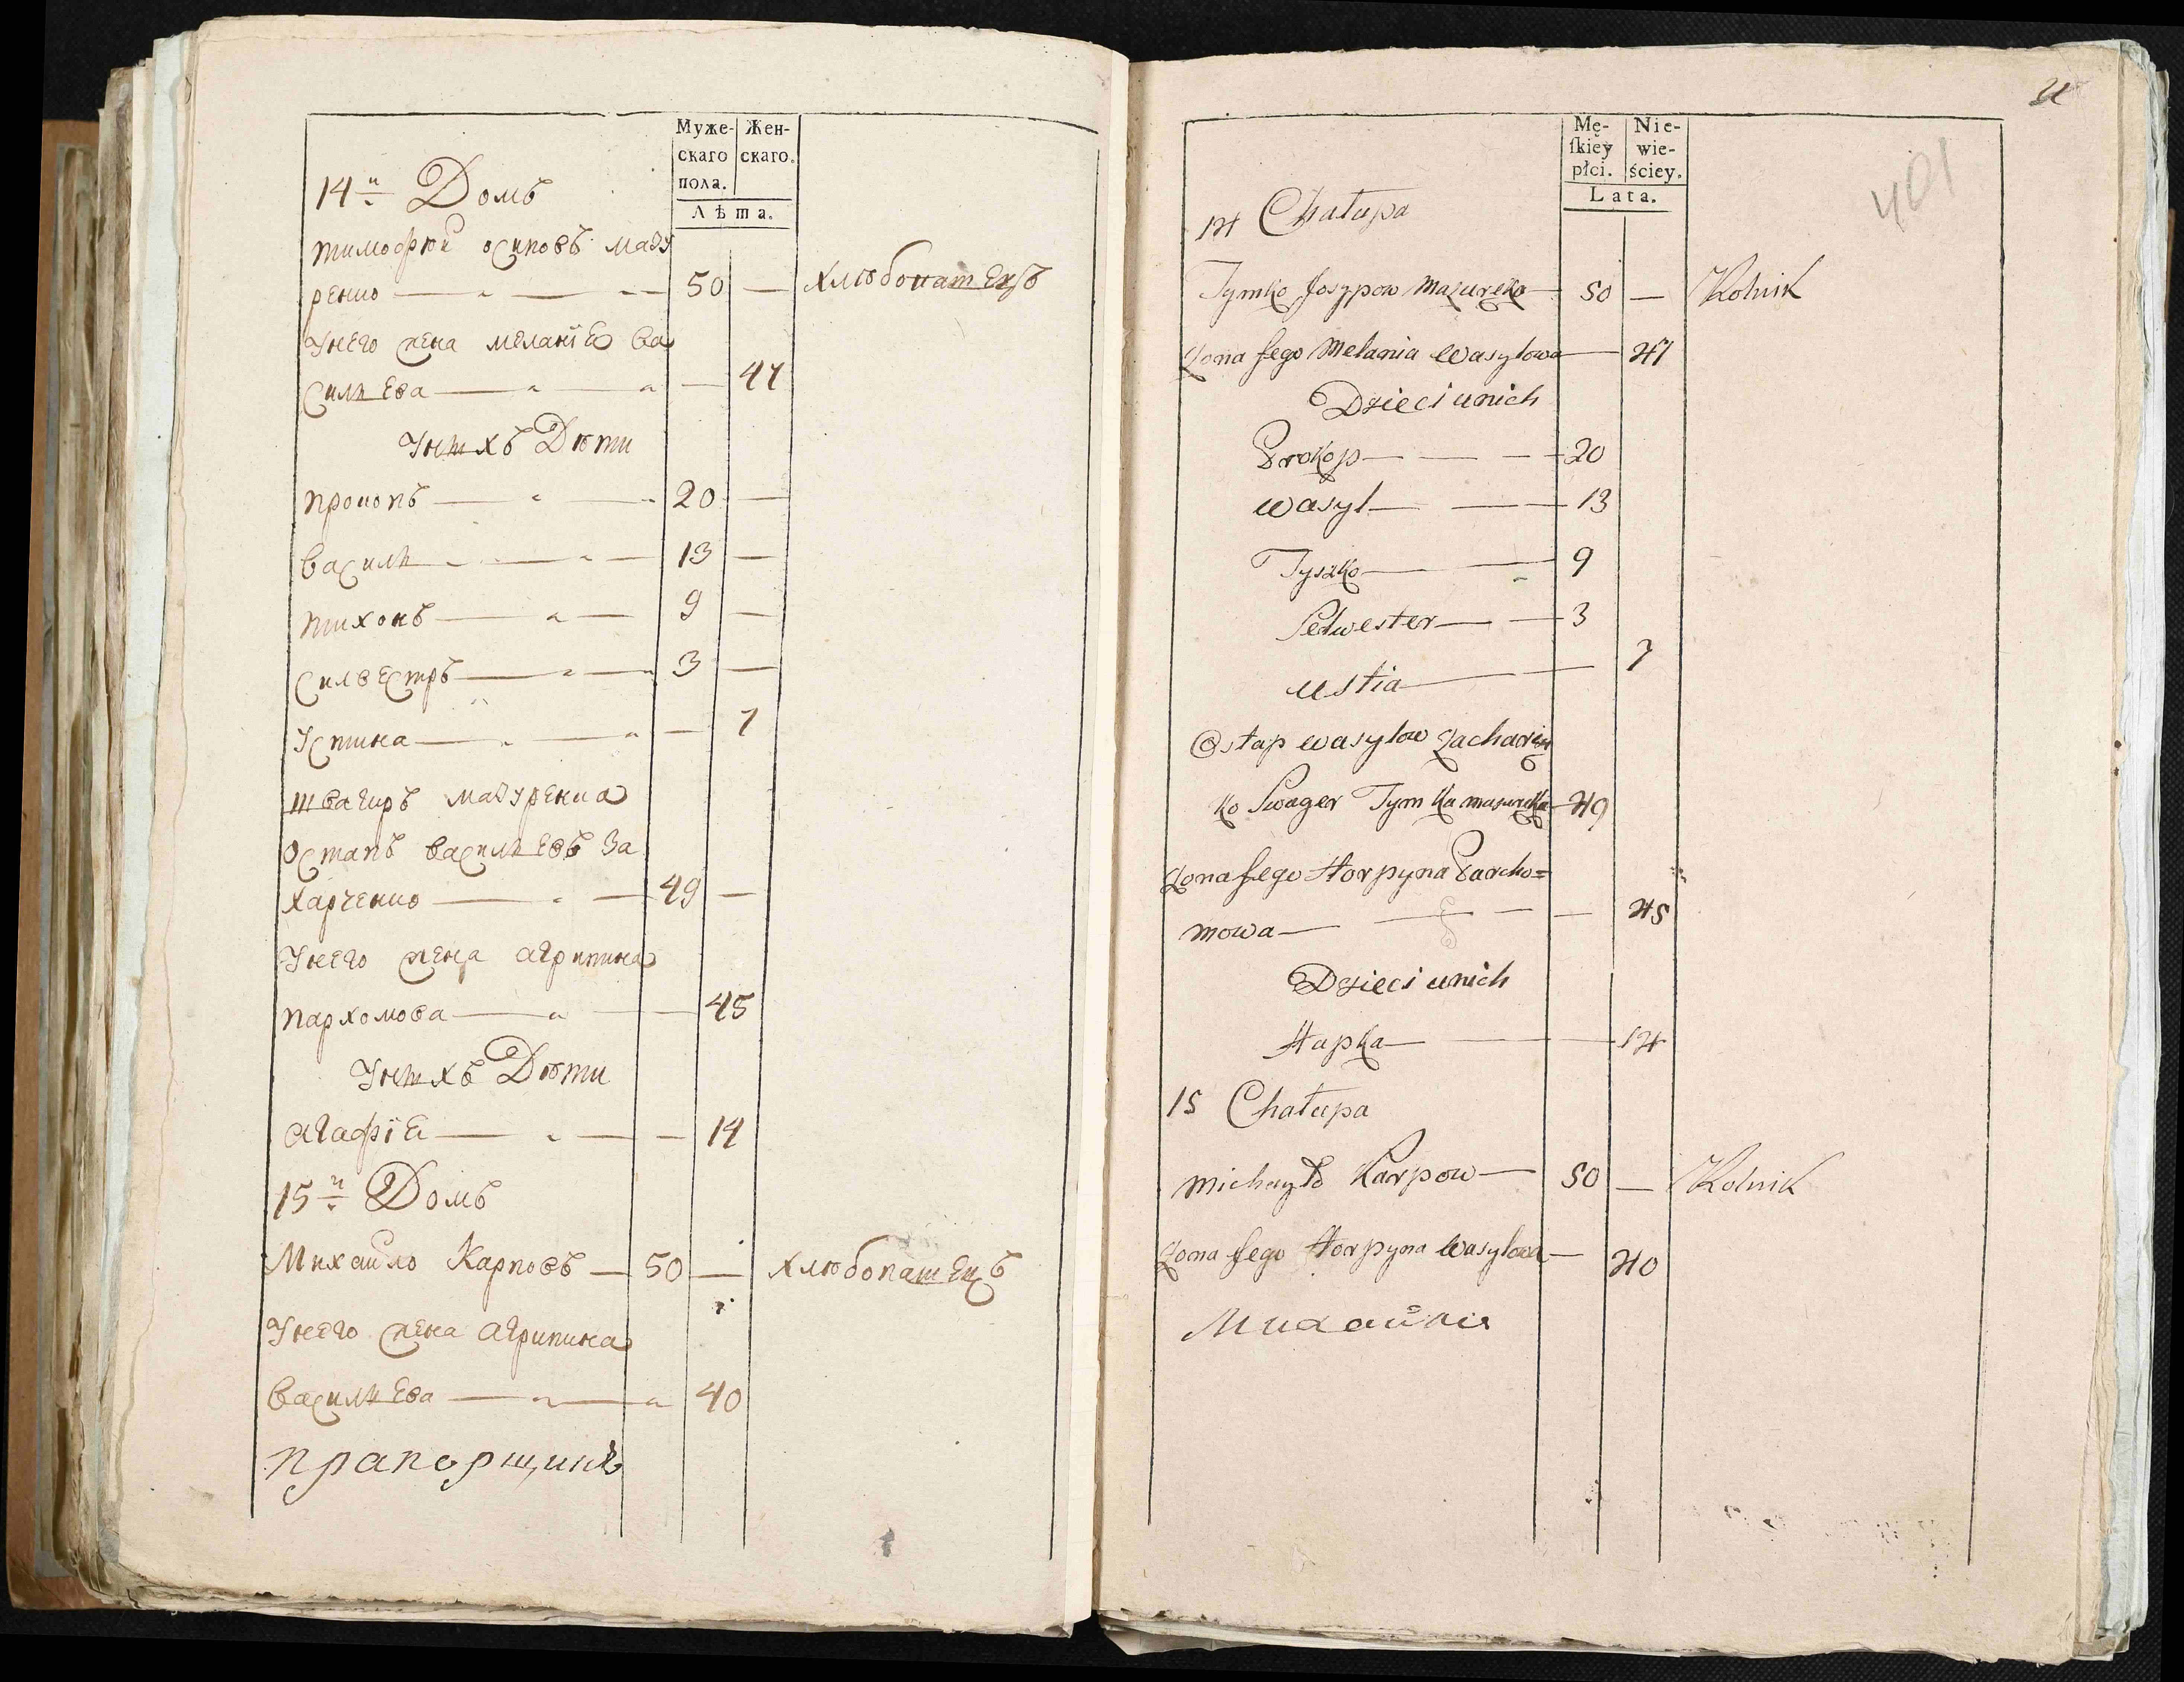 Муже-
скаго
пола.
Жен-
скаго.
Лѣта.
14й Домъ
тимофѣй осиповъ мазу
ренко 50 — хлѣбопашецъ
унего жена меланія ва
сильева — 47
унихъ Дѣти
прокопъ 20 —
василь 13 —
тихонъ 9 —
силвестръ 3 —
устина — 7
швагиръ мазуренка
остапъ васильевъ за
харченко 49 —
унего жена агрипина
пархомова — 45
унихъ Дѣти
агафія — 14
15й Домъ
Михайло Карповъ — 50 — хлѣбопашецъ
унего жена агрипина
васильева — 40
прапорщикъ
Mę-
ſkiey
płci.
Nie-
wie-
ściey.
Lata.
401
14 Chałupa
Tymko Josypow Mazureko 50 — Rolnik
Zona Jego Melania Wasylowa — 47
Dzieci unich
Prokop — 20
Wasyl — 13
Tyszko — 9
Selwester — 3
Ustia — 7
Ostap Wasylow Zacharczen
ko Swager Tymka mazureka 49
Zona Jego Horpyna Parcho=
mowa — 45
Dzieci unich
Hapka — 14
15 Chałupa
Michayło Karpow — 50 — Rolnik
Zona Jego Horpyna Wasylowa — 40